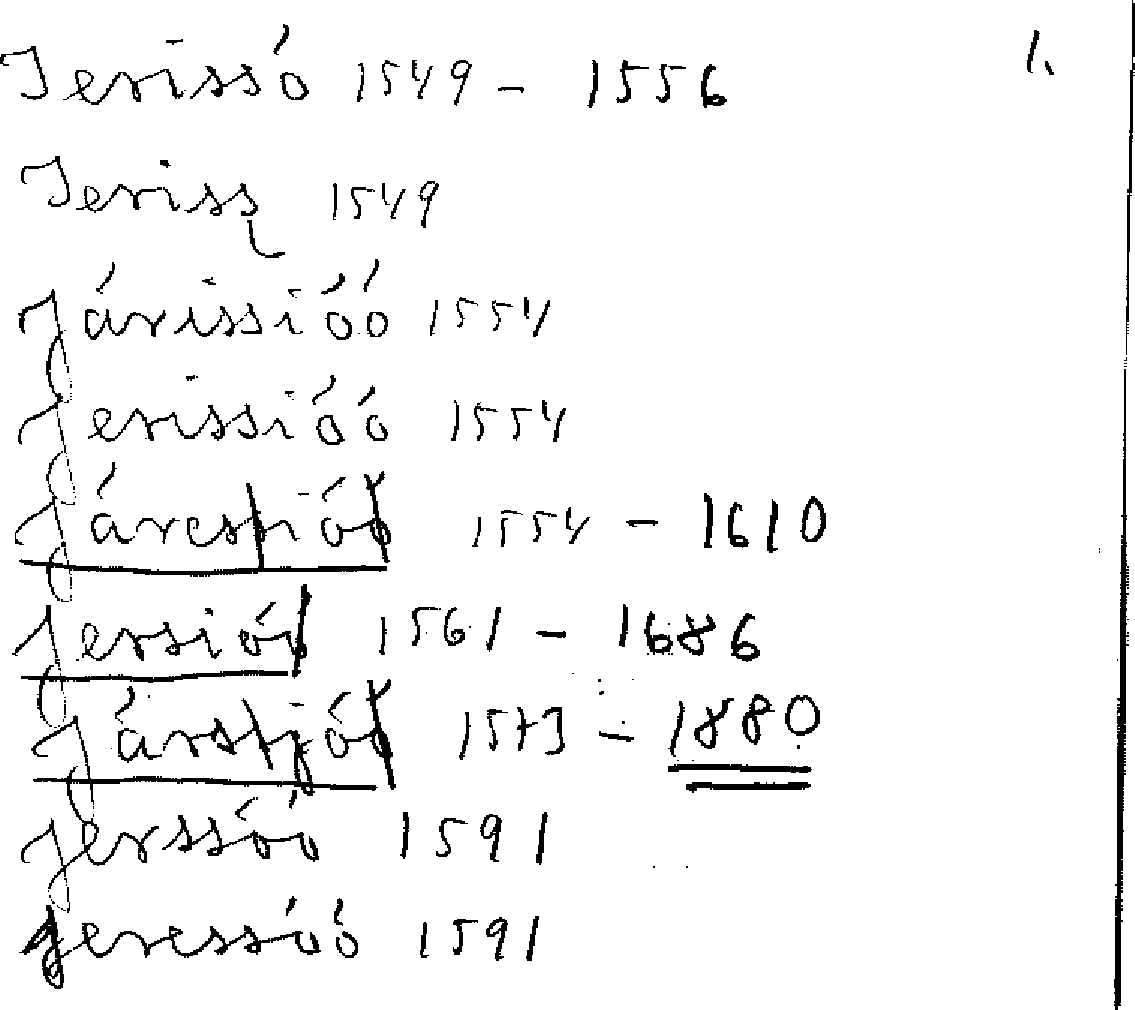 Jerissó 1549 - 1556 1.
Jeriss 1549
Járissióó 1554
Jerissióó 1554
Járesióó 1554 - 1610
Jerssióó 1561 - 1686
Jársjóó 1573 - 1880
Jerssóó 1591
Jeressóó 1591